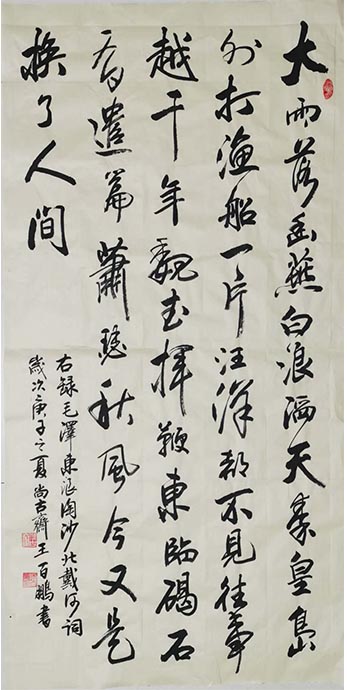 大雨落幽燕白浪滔天秦皇島
外打漁船一片汪洋都不見往事
越千年魏武揮鞭東臨碣石
有遺篇蕭瑟秋風今又是
換了人间
右録毛澤東浪淘沙北戴河詞
歲次庚子之夏尚古齋王百鵬書